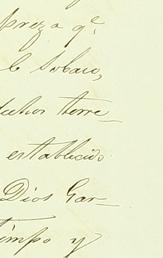 preza qe.
le Sobaco,
dichos terre_
establecido
Dios Gar_
timpo y